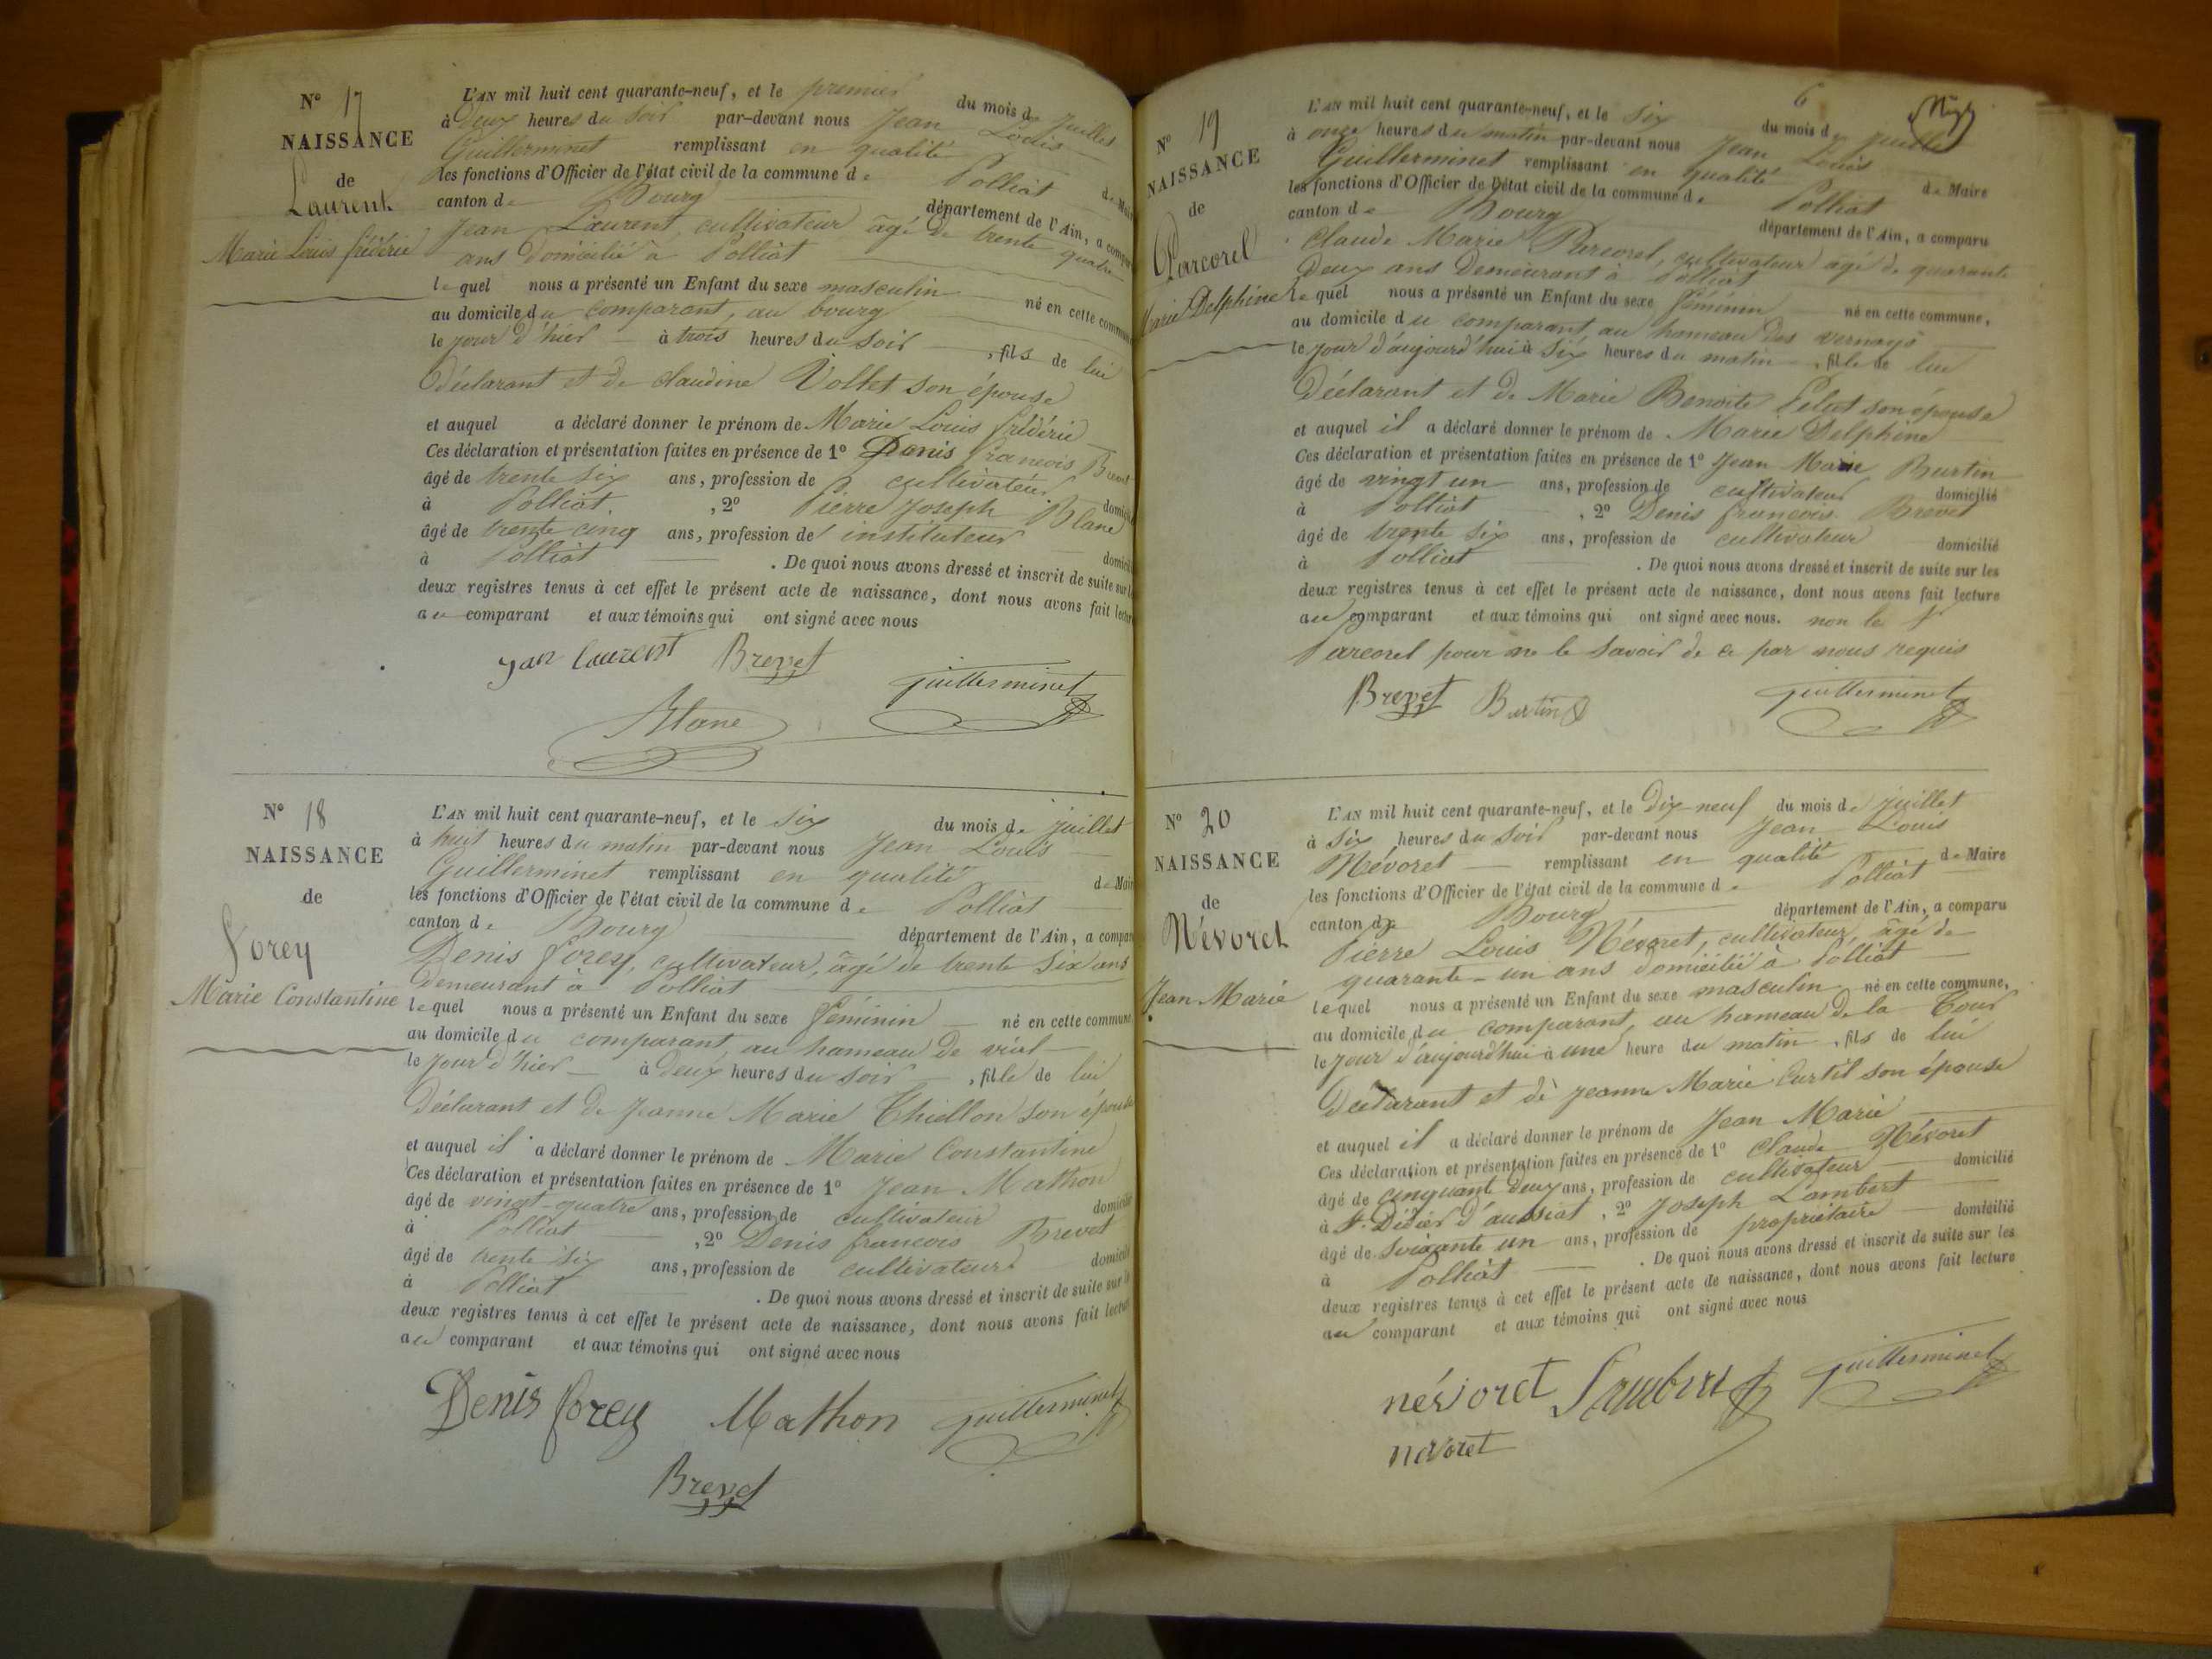 N° 17
NAISSANCE
de
Laurent
Marie Louis frédéric
L'AN mil huit cent quarante-neuf, et le premier du mois de juillet
à deux heures du soir par-devant nous Jean Louis
Guillerminet remplissant en qualité de Maire
les fonctions d'Officier de l'état civil de la commune de Polliat
canton de Bourg département de l'Ain, a comparu
Jean Laurent, cultivateur âgé de trente quatre
ans domicilié à Polliat
lequel nous a présenté un Enfant du sexe masculin né en cette commune
au domicile du comparant, au bourg
le jour d'hier à trois heures du soir, fils de lui
déclarant et de claudine Vollet son épouse
et auquel a déclaré donner le prénom de Marie Louis frédéric
Ces déclaration et présentation faites en présence de 1° Denis francois Brevet
âgé de trente six ans, profession de cultivateur
à Polliat, 2° Pierre Joseph Blanc domicilié
âgé de trente cinq ans, profession de instituteur
à Polliat. De quoi nous avons dressé et inscrit de suite sur les domicilié
deux registres tenus à cet effet le présent acte de naissance, dont nous avons fait lecture
au comparant et aux témoins qui ont signé avec nous
jan laurent Brevet
guillerminet
Blanc
N° 18
NAISSANCE
de
forey
Marie Constantine
L'AN mil huit cent quarante-neuf, et le six du mois de juillet
à huit heures du matin par-devant nous Jean Louis
Guillerminet remplissant en qualité de Maire
les fonctions d'Officier de l'état civil de la commune de Polliat
canton de Bourg département de l'Ain, a comparu
Denis forey, cultivateur, âgé de trente six ans
demeurant à Polliat
lequel nous a présenté un Enfant du sexe féminin né en cette commune
au domicile du comparant, au hameau de
le jour d'hier à deux heures du soir, fille de lui
déclarant et de jeanne Marie Thiellon son épouse
et auquel il a déclaré donner le prénom de Marie Constantine
Ces déclaration et présentation faites en présence de 1° Jean Mathon
âgé de vingt-quatre ans, profession de cultivateur domicilié
à Polliat, 2° Denis francois Brevet
âgé de trente six ans, profession de cultivateur domicilié
à Polliat. De quoi nous avons dressé et inscrit de suite sur les
deux registres tenus à cet effet le présent acte de naissance, dont nous avons fait lecture
au comparant et aux témoins qui ont signé avec nous
Denis forey Mathon guillerminet
Brevet
6
N° 19
NAISSANCE
de
Parcorel
Marie Delphine
L'AN mil huit cent quarante-neuf, et le six du mois de juillet
à onze heures du matin par-devant nous Jean Louis
Guillerminet remplissant en qualité de Maire
les fonctions d'Officier de l'état civil de la commune de Polliat
canton de Bourg département de l'Ain, a comparu
Claude Marie Parcorel, cultivateur âgé de quarante
deux ans demeurant à Polliat
lequel nous a présenté un Enfant du sexe féminin né en cette commune,
au domicile du comparant au hameau des vernays
le jour d'aujourd'hui à six heures du matin, fille de lui
déclarant et de Marie Benoite Pelut son épouse
et auquel il a déclaré donner le prénom de Marie Delphine
Ces déclaration et présentation faites en présence de 1° Jean Marie Burtin
âgé de vingt un ans, profession de cultivateur domicilié
à Polliat, 2° Denis francois Brevet
âgé de trente six ans, profession de cultivateur domicilié
à Polliat. De quoi nous avons dressé et inscrit de suite sur les
deux registres tenus à cet effet le présent acte de naissance, dont nous avons fait lecture
au comparant et aux témoins qui ont signé avec nous. non le
Parcorel pour ne le savoir de ce par nous requis
Brevet Burtin guillerminet
N° 20
NAISSANCE
de
Névoret
Jean Marie
L'AN mil huit cent quarante-neuf, et le Dix neuf du mois de juillet
à six heures du soir par-devant nous Jean Louis
Névoret remplissant en qualité de Maire
les fonctions d'Officier de l'état civil de la commune de Polliat
canton de Bourg département de l'Ain, a comparu
Pierre Louis Névoret, cultivateur âgé de
quarante-un ans domicilié à Polliat
lequel nous a présenté un Enfant du sexe masculin né en cette commune,
au domicile du comparant, au hameau de la Cour
le jour d'aujourd'hui à une heure du matin, fils de lui
déclarant et de jeanne Marie Curtil son épouse
et auquel il a déclaré donner le prénom de Jean Marie
Ces déclaration et présentation faites en présence de 1° Claude Névoret
âgé de cinquant deux ans, profession de cultivateur domicilié
à St. Didier d'aussiat, 2° Joseph Lambert
âgé de soixante un ans, profession de propriétaire domicilié
à Polliat. De quoi nous avons dressé et inscrit de suite sur les
deux registres tenus à cet effet le présent acte de naissance, dont nous avons fait lecture
au comparant et aux témoins qui ont signé avec nous
névoret Lambert guillerminet
névoret